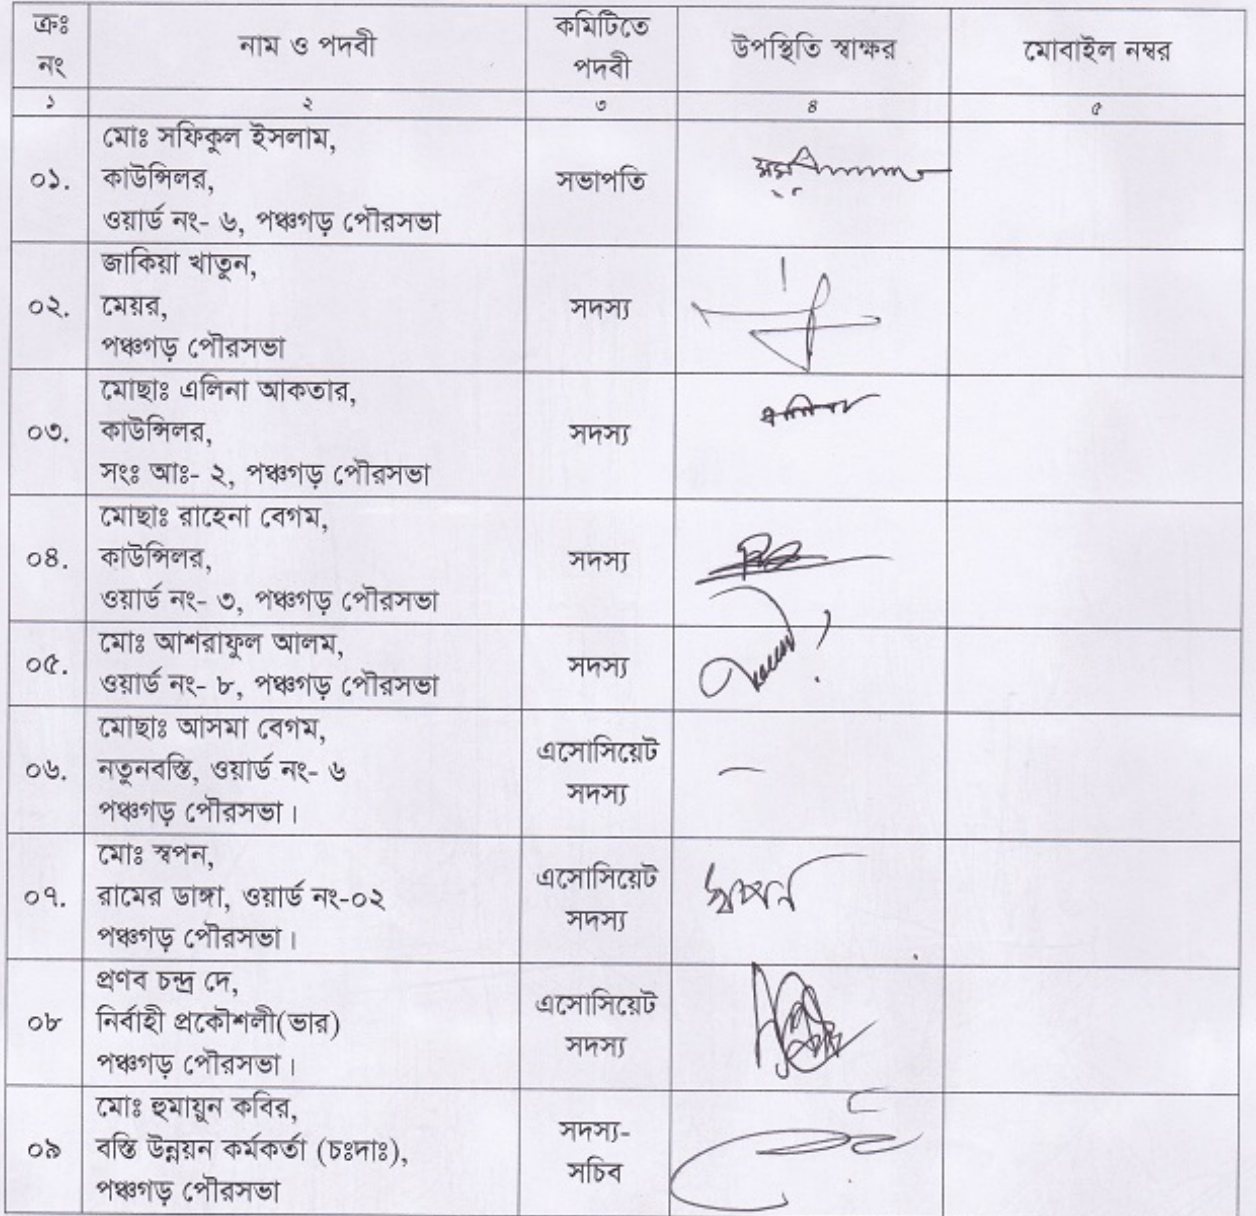 ক্রঃ নং
নাম ও পদবী
কমিটিতে পদবী
উপস্থিতি স্বাক্ষর
মোবাইল নম্বর
১ ২ ৩ ৪ ৫
০১.
মোঃ সফিকুল ইসলাম,
কাউন্সিলর,
ওয়ার্ড নং- ৬, পঞ্চগড় পৌরসভা
সভাপতি
০২.
জাকিয়া খাতুন,
মেয়র,
পঞ্চগড় পৌরসভা
সদস্য
০৩.
মোছাঃ এলিনা আকতার,
কাউন্সিলর,
সংঃ আঃ- ২, পঞ্চগড় পৌরসভা
সদস্য
এলিনা
০৪.
মোছাঃ রাহেনা বেগম,
কাউন্সিলর,
ওয়ার্ড নং- ৩, পঞ্চগড় পৌরসভা
সদস্য
০৫.
মোঃ আশরাফুল আলম,
ওয়ার্ড নং- ৮, পঞ্চগড় পৌরসভা
সদস্য
০৬.
মোছাঃ আসমা বেগম,
নতুনবস্তি, ওয়ার্ড নং- ৬
পঞ্চগড় পৌরসভা।
এসোসিয়েট
সদস্য
০৭.
মোঃ স্বপন,
রামের ডাঙ্গা, ওয়ার্ড নং-০২
পঞ্চগড় পৌরসভা।
এসোসিয়েট
সদস্য
স্বপন
০৮
প্রণব চন্দ্র দে,
নির্বাহী প্রকৌশলী(ভার)
পঞ্চগড় পৌরসভা।
এসোসিয়েট
সদস্য
০৯
মোঃ হুমায়ুন কবির,
বস্তি উন্নয়ন কর্মকর্তা (চঃদাঃ),
পঞ্চগড় পৌরসভা
সদস্য-
সচিব